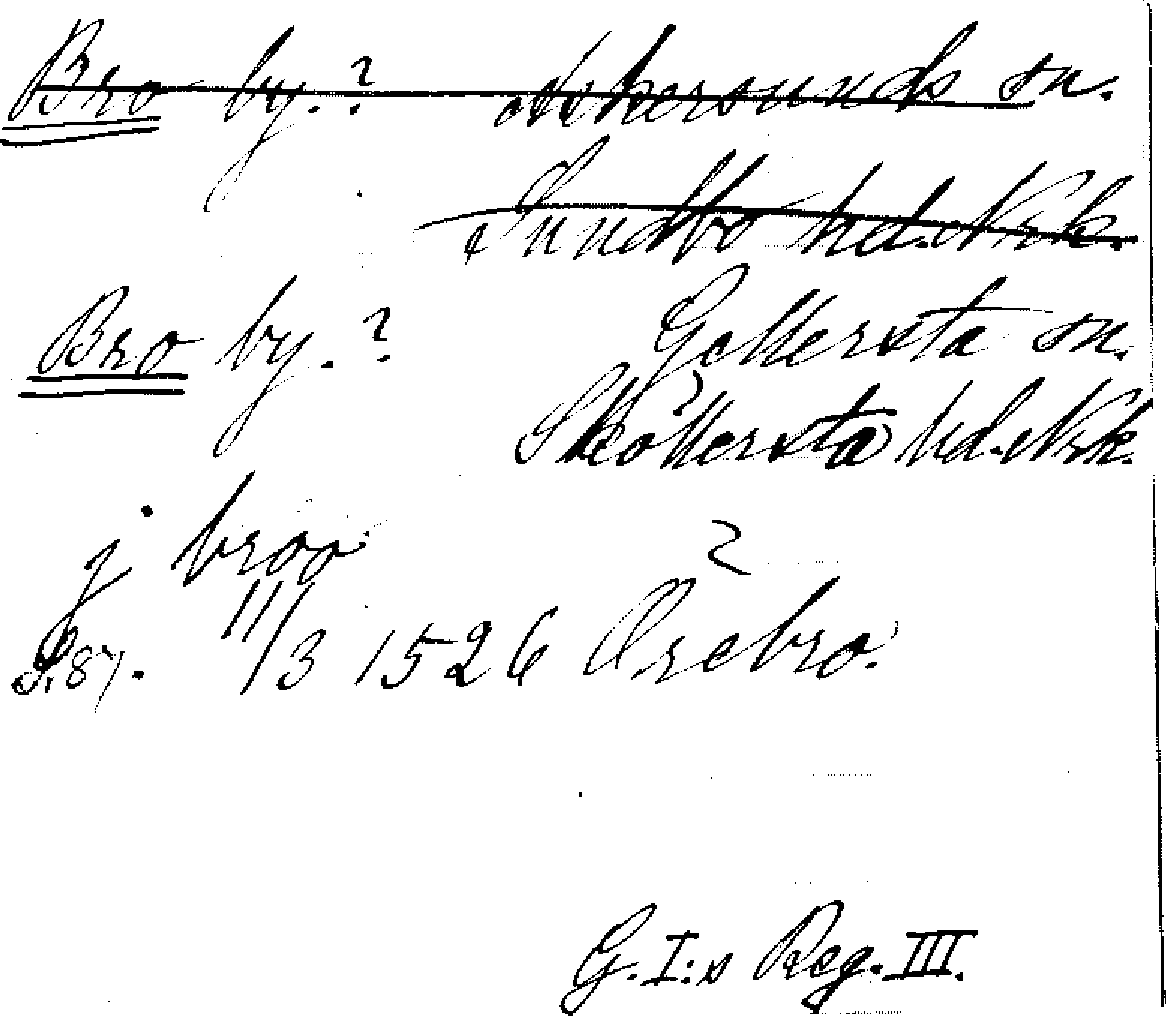 Bro by.? Askersunds sn.
Sundbo hd. Nrk.
Bro by.? Gällersta sn.
Sköllersta hd. Nrk.
j broo ?
S. 87. 11/3 1526 Örebro.
G. I:s Reg. III.